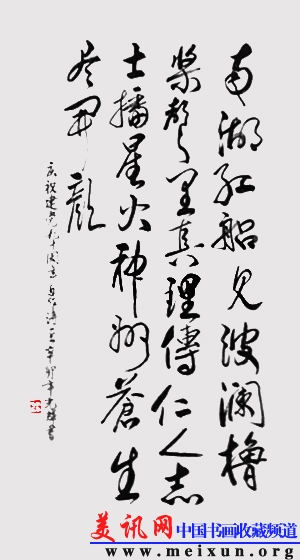 南湖红船见波澜橹
槳声里真理傳仁人志
士播星火神州蒼生
尽開顔
庆祝建党九十周年 辛卯年 書
美讯网 中国书画收藏频道
www.meixun.org